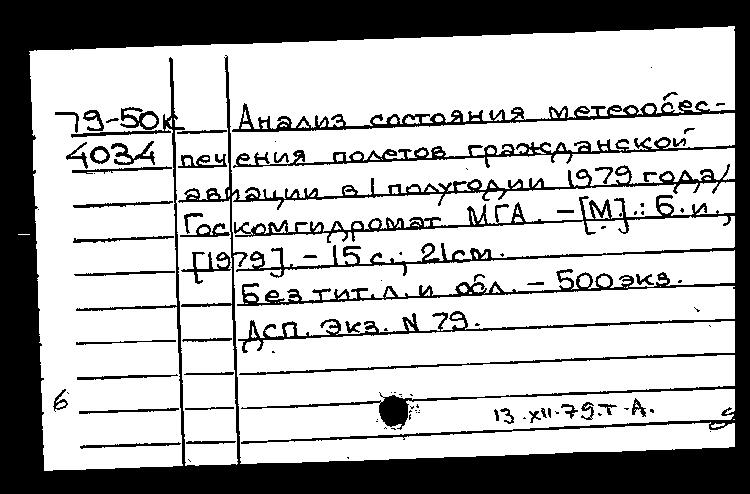 79-50к Анализ состояния метеообес-
4034 печения полетов гражданской
авиации в I полугодии 1979 года/
Госкомгидромет МГА. – [М].: Б.и.,
[1979]. – 15 с.; 21 см.
Без тит.л. и обл. – 500 экз.
Дсп. Экз. N 79.
6
13.XII.79.т-А.